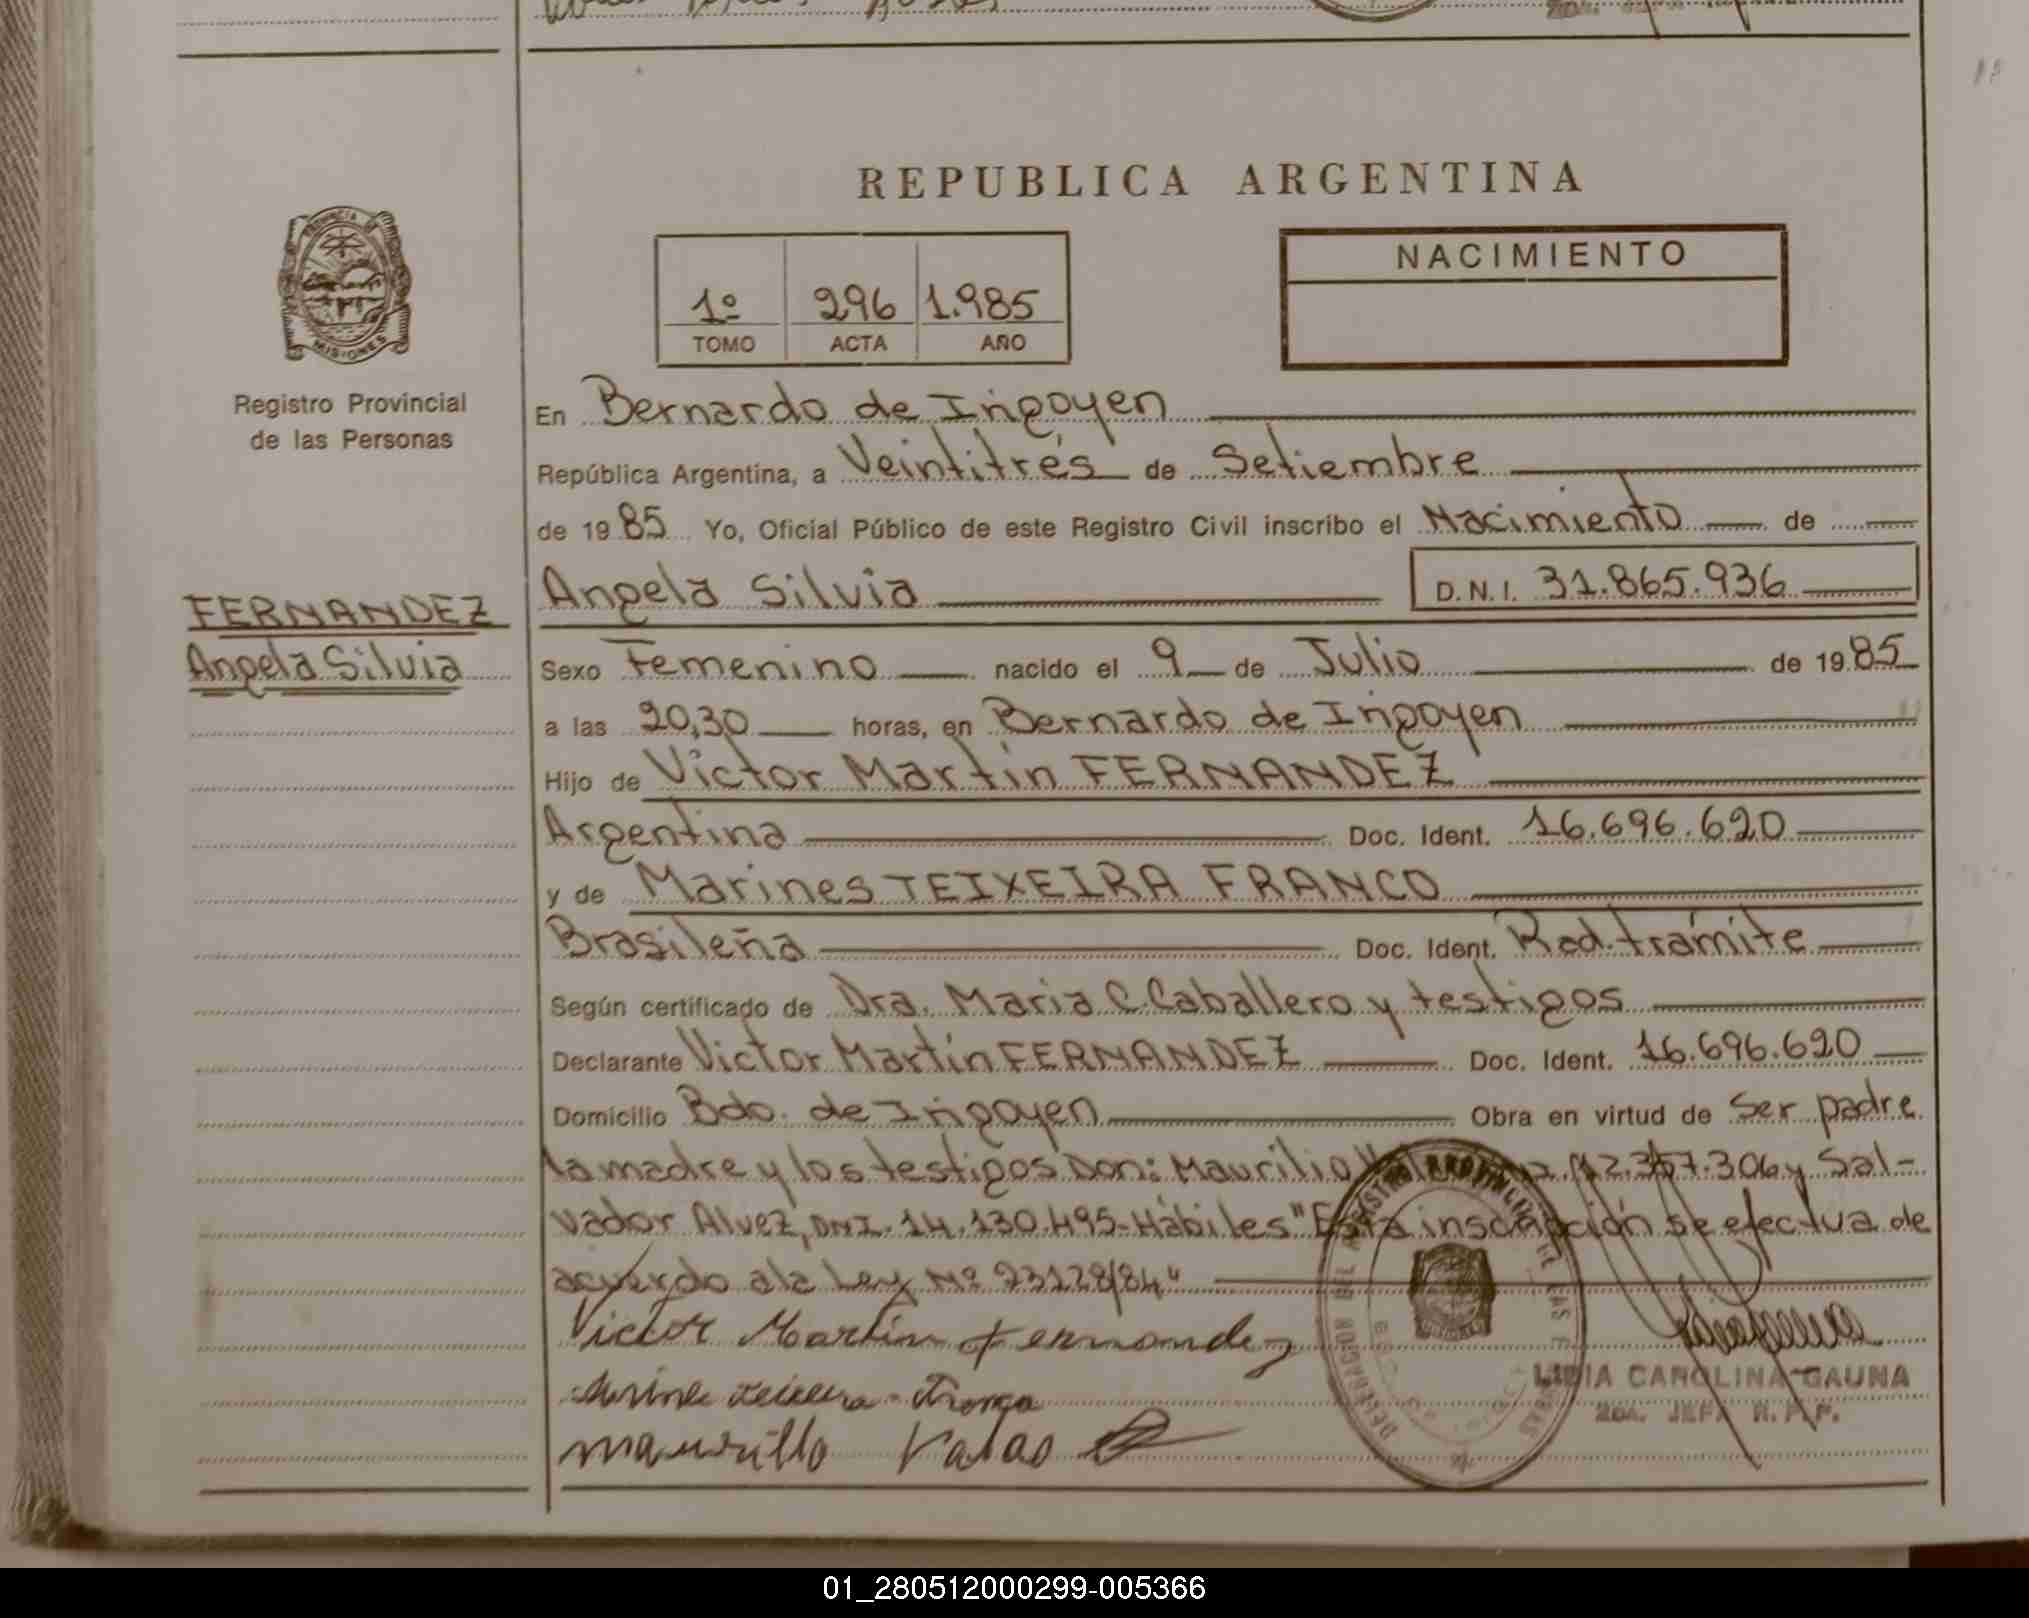 REPUBLICA ARGENTINA
PROVINCIA DE
MISIONES
Registro Provincial
de las Personas
1º 296 1.985
TOMO ACTA AÑO
NACIMIENTO
En Bernardo de Irigoyen
República Argentina, a Veintitrés de Setiembre
de 1985 Yo, Oficial Público de este Registro Civil inscribo el Nacimiento de
Angela Silvia D.N.I. 31.865.936
FERNANDEZ
Angela Silvia
Sexo Femenino nacido el 9 de Julio de 1985
a las 20,30 horas, en Bernardo de Irigoyen
Hijo de Victor Martín FERNANDEZ
Argentina Doc. Ident. 16.696.620
y de Marines TEIXEIRA FRANCO
Brasileña Doc. Ident. Rad. trámite
Según certificado de Dra. Maria C. Caballero y testigos
Declarante Victor Martín FERNANDEZ Doc. Ident. 16.696.620
Domicilio Bdo. de Irigoyen Obra en virtud de Ser padre
la madre y los testigos Don: Maurilio 12.357.306 y Sal-
vador Alvez, DNI. 14.130.495-Hábiles "Esta inscripción se efectua de
acuerdo a la Ley Nº 23128/84"
Victor Martin Fernandez
LIDIA CAROLINA GAUNA
2da. JEFA R.P.P.
Maurillo
01_280512000299-005366